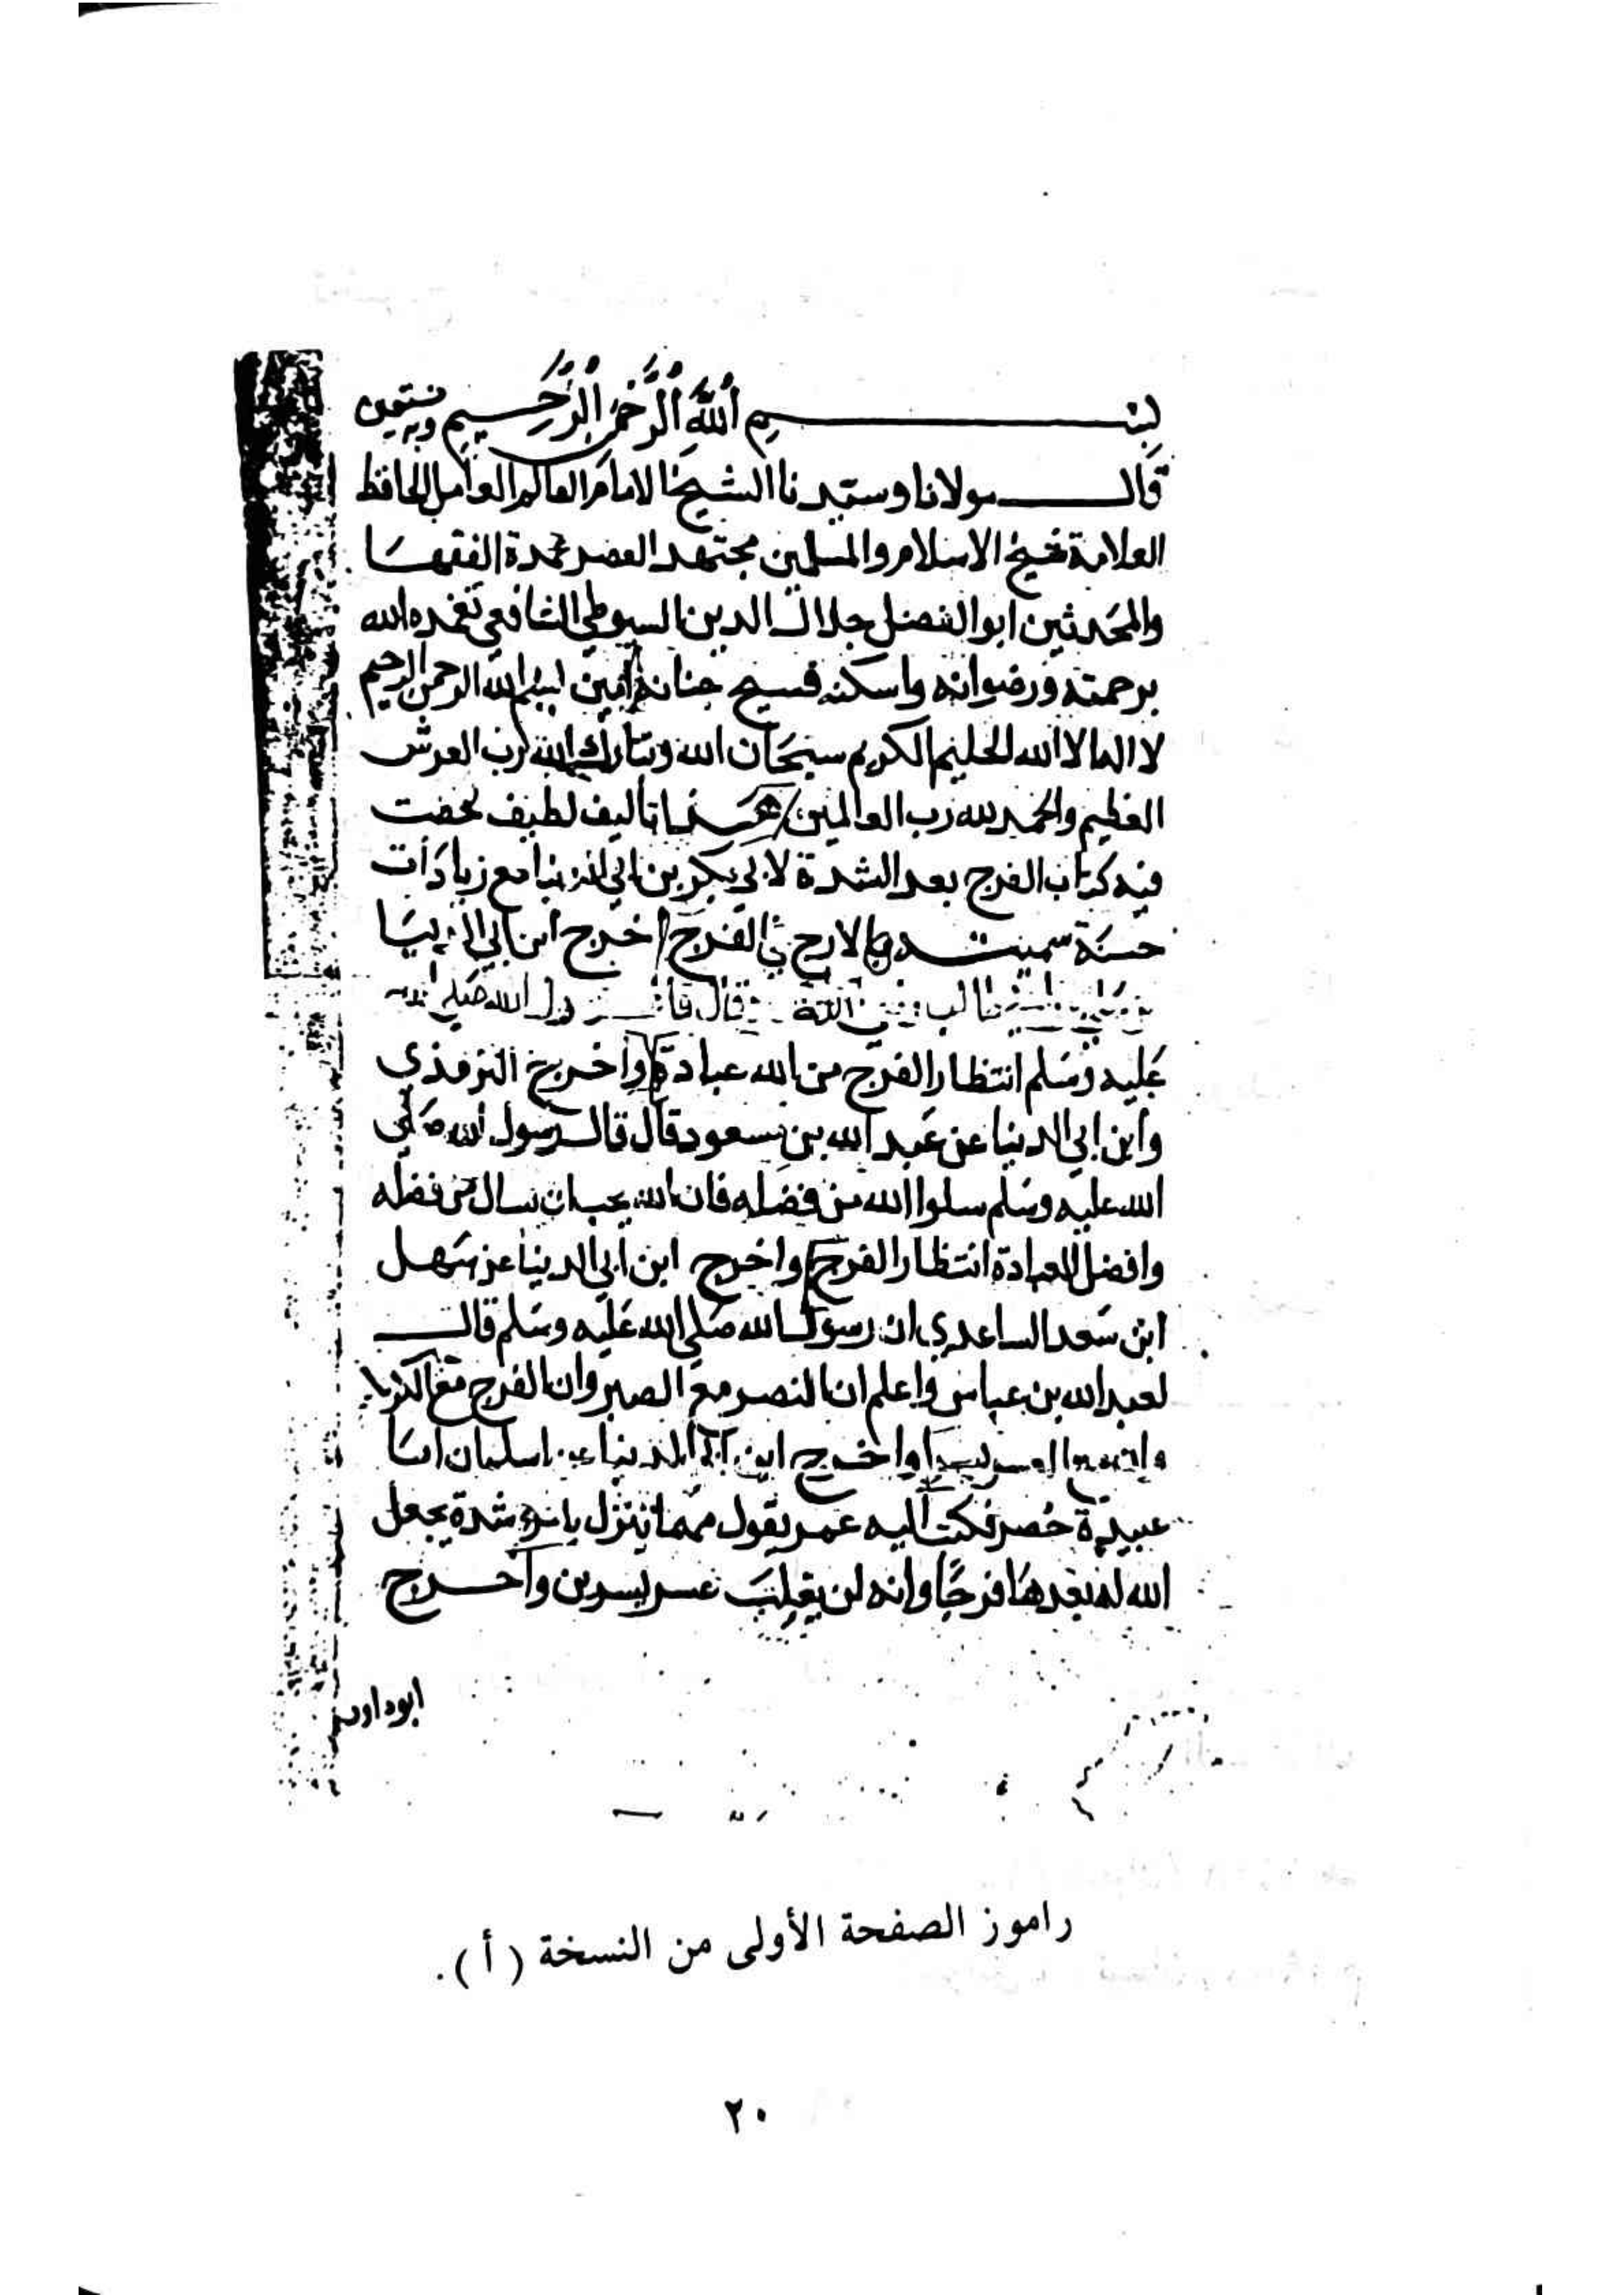 بسم الله الرحمن الرحيم وبه نستعين
قال مولانا وسيدنا الشيخ الامام العالم العامل الحافظ
العلامة شيخ الاسلام والمسلمين مجتهد العصر عمدة الفقها
والمحدثين ابو الفضل جلال الدين السيوطي الشافعي تغمده الله
برحمته ورضوانه واسكنه فسيح جنانه امين بسم الله الرحمن الرحيم
لا اله الا الله الحليم الكريم سبحان الله وتبارك الله رب العرش
العظيم والحمد لله رب العالمين هذا تاليف لطيف لخصت
فيه كتاب الفرج بعد الشدة لابي بكر بن ابي الدنيا مع زيادات
حسنة سميته بالارج في الفرج اخرج ابن ابي الدنيا
طالب رضي الله قال قال رسول الله صلى الله
عليه وسلم انتظار الفرج من الله عبادة واخرج الترمذي
وابن ابي الدنيا عن عبد الله بن مسعود قال قال رسول الله صلى
الله عليه وسلم سلوا الله من فضله فان الله يحب ان يسال من فضله
وافضل العبادة انتظار الفرج واخرج ابن ابي الدنيا عن سهل
ابن سعد الساعدي ان رسول الله صلى الله عليه وسلم قال
لعبد الله بن عباس واعلم ان النصر مع الصبر وان الفرج مع الكرب
وان مع العسر يسرا واخرج ابن ابي الدنيا عن اسلم ان ابا
عبيدة حصر فكتب اليه عمر يقول مهما ينزل بامرء شدة يجعل
الله له بعدها فرجا وانه لن يغلب عسر يسرين واخرج
ابو داود
راموز الصفحة الأولى من النسخة (أ).
٢٠